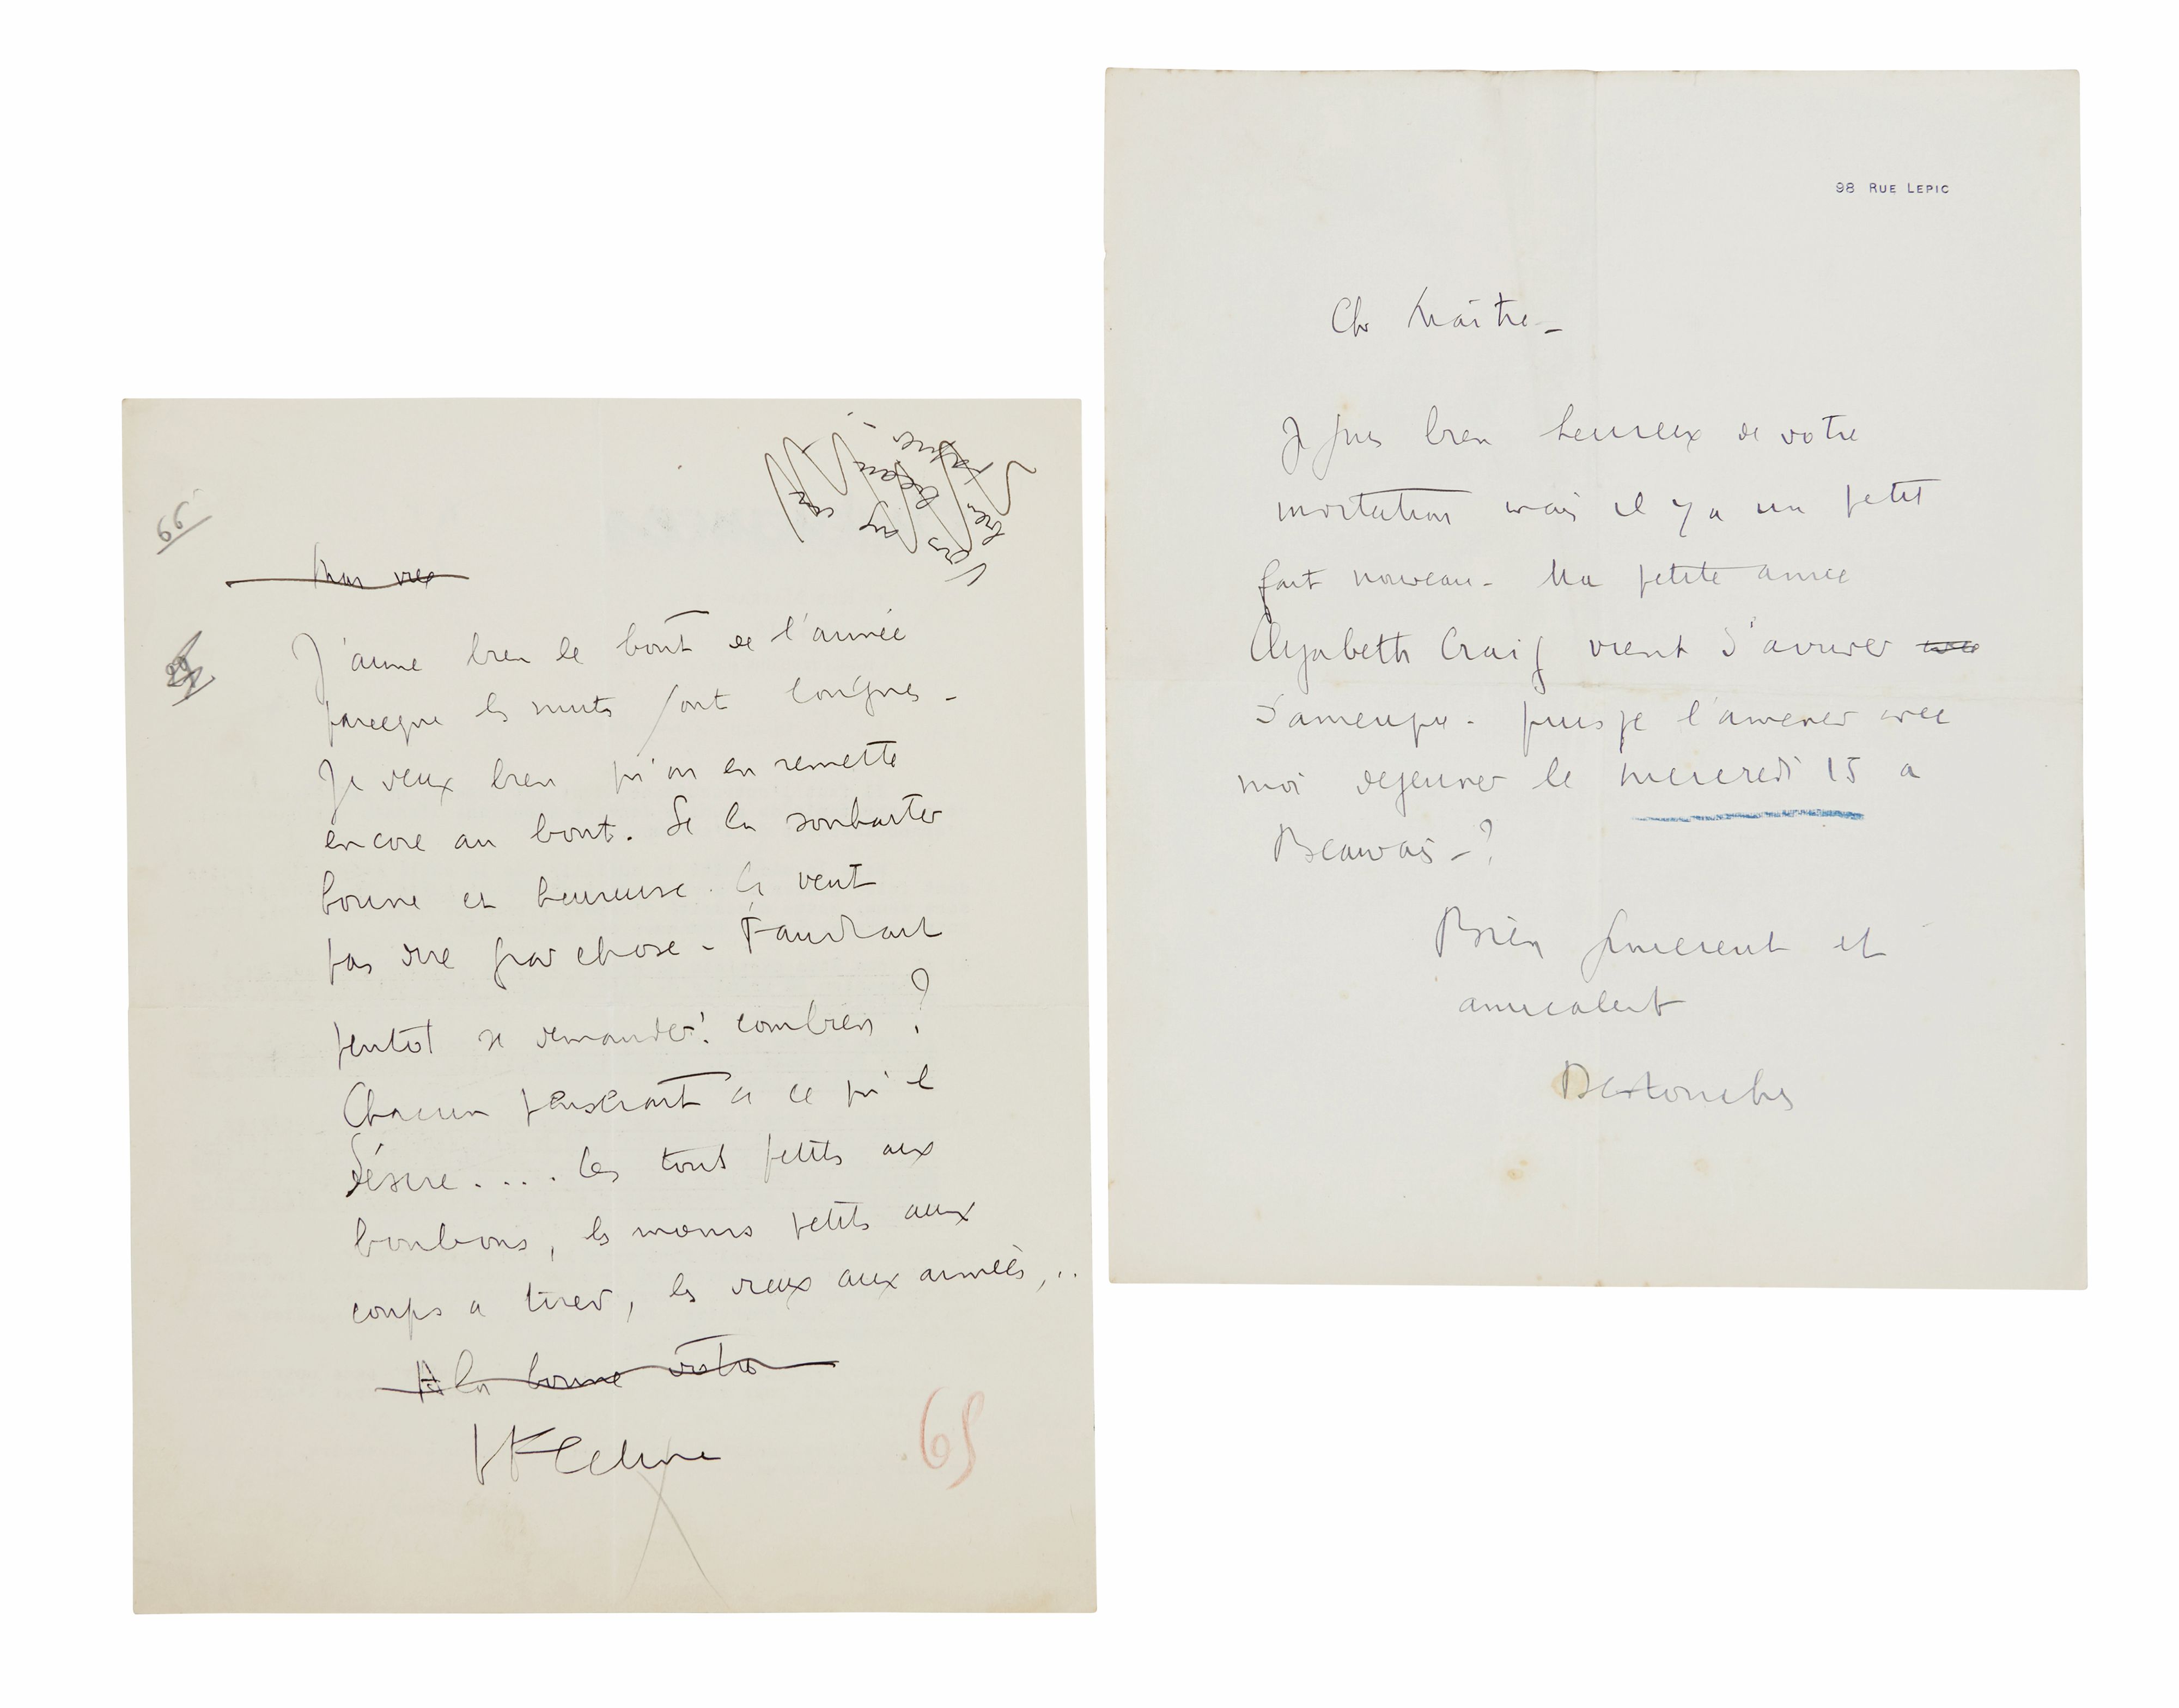 66
Mon vieux
J'aime bien le bout de l'année
parceque les nuits sont longues -
Je veux bien qu'on en remette
encore au bout. Se la souhaiter
bonne et heureuse. Ça veut
pas dire grand chose - Faudrait
plutot se demander! combien ?
Chacun penserait à ce qu'il
désire.... les touts petits aux
bonbons, les moins petits aux
coups a tirer, les vieux aux années,..
A la bonne votre
LF Celine
65
98 RUE LEPIC
Ch Maître -
Je suis bien heureux de votre
invitation mais il y a un petit
fait nouveau - Ma petite amie
Elizabeth Craig vient d'arriver avec
d'amerique - puis je l'amener avec
moi dejeuner le mercredi 15 a
Beauvais - ?
Bien sincerement et
amicalent
Destouches